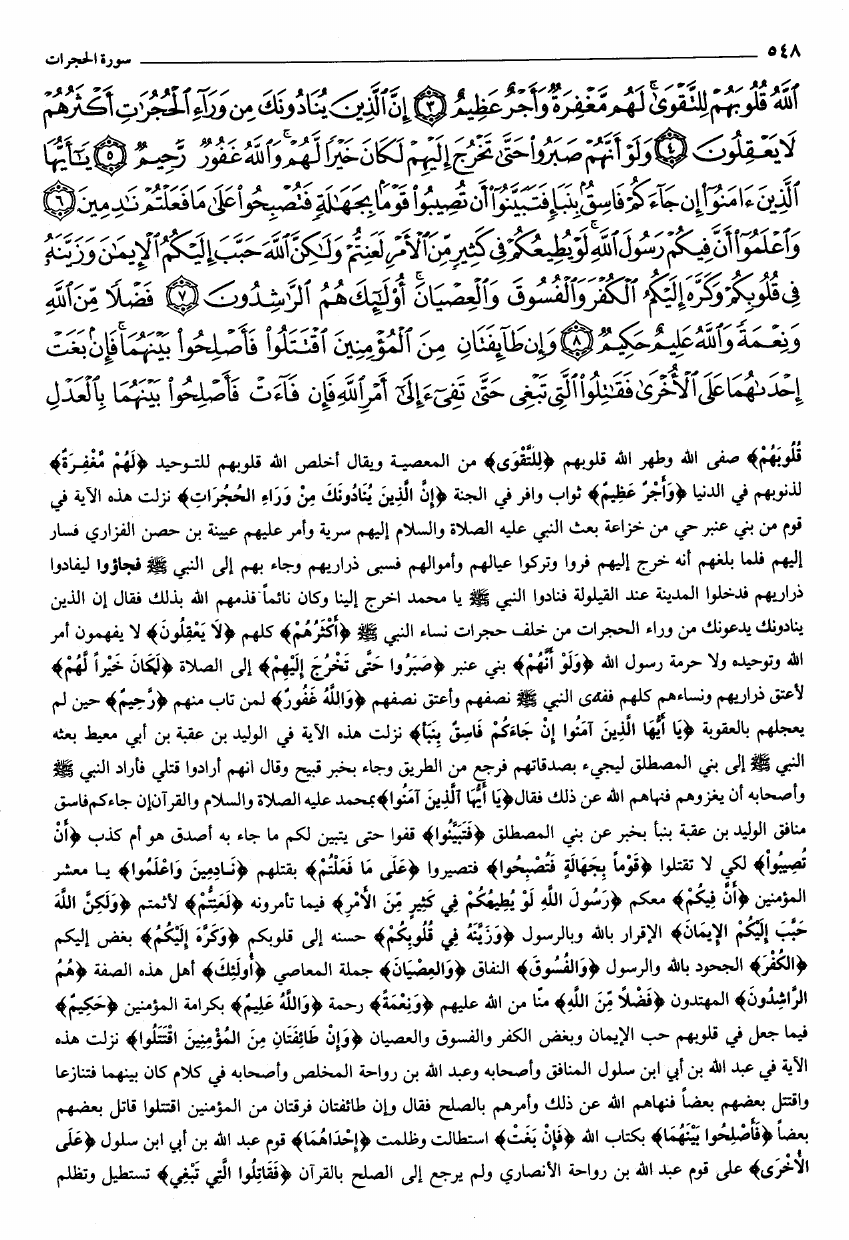 ٥٤٨ سورة الحجرات
ٱللَّهُ قُلُوبَهُمْ لِلتَّقْوَىٰ لَهُم مَّغْفِرَةٌ وَأَجْرٌ عَظِيمٌ ﴿٣﴾ إِنَّ ٱلَّذِينَ يُنَادُونَكَ مِن وَرَآءِ ٱلْحُجُرَٰتِ أَكْثَرُهُمْ
لَا يَعْقِلُونَ ﴿٤﴾ وَلَوْ أَنَّهُمْ صَبَرُوا۟ حَتَّىٰ تَخْرُجَ إِلَيْهِمْ لَكَانَ خَيْرًا لَّهُمْ وَٱللَّهُ غَفُورٌ رَّحِيمٌ ﴿٥﴾ يَٰٓأَيُّهَا
ٱلَّذِينَ ءَامَنُوٓا۟ إِن جَآءَكُمْ فَاسِقٌۢ بِنَبَإٍ فَتَبَيَّنُوٓا۟ أَن تُصِيبُوا۟ قَوْمًۢا بِجَهَٰلَةٍ فَتُصْبِحُوا۟ عَلَىٰ مَا فَعَلْتُمْ نَٰدِمِينَ ﴿٦﴾
وَٱعْلَمُوٓا۟ أَنَّ فِيكُمْ رَسُولَ ٱللَّهِ لَوْ يُطِيعُكُمْ فِى كَثِيرٍ مِّنَ ٱلْأَمْرِ لَعَنِتُّمْ وَلَٰكِنَّ ٱللَّهَ حَبَّبَ إِلَيْكُمُ ٱلْإِيمَٰنَ وَزَيَّنَهُۥ
فِى قُلُوبِكُمْ وَكَرَّهَ إِلَيْكُمُ ٱلْكُفْرَ وَٱلْفُسُوقَ وَٱلْعِصْيَانَ أُو۟لَٰٓئِكَ هُمُ ٱلرَّٰشِدُونَ ﴿٧﴾ فَضْلًا مِّنَ ٱللَّهِ
وَنِعْمَةً وَٱللَّهُ عَلِيمٌ حَكِيمٌ ﴿٨﴾ وَإِن طَآئِفَتَانِ مِنَ ٱلْمُؤْمِنِينَ ٱقْتَتَلُوا۟ فَأَصْلِحُوا۟ بَيْنَهُمَا فَإِنۢ بَغَتْ
إِحْدَىٰهُمَا عَلَى ٱلْأُخْرَىٰ فَقَٰتِلُوا۟ ٱلَّتِى تَبْغِى حَتَّىٰ تَفِىٓءَ إِلَىٰٓ أَمْرِ ٱللَّهِ فَإِن فَآءَتْ فَأَصْلِحُوا۟ بَيْنَهُمَا بِٱلْعَدْلِ
قُلُوبَهُمْ﴾ صفى الله وطهر الله قلوبهم ﴿لِلتَّقْوَى﴾ من المعصية ويقال أخلص الله قلوبهم للتوحيد ﴿لَهُمْ مَّغْفِرَةٌ﴾
لذنوبهم في الدنيا ﴿وَأَجْرٌ عَظِيمٌ﴾ ثواب وافر في الجنة ﴿إِنَّ الَّذِينَ يُنَادُونَكَ مِنْ وَرَاءِ الحُجُرَاتِ﴾ نزلت هذه الآية في
قوم من بني عنبر حي من خزاعة بعث النبي عليه الصلاة والسلام إليهم سرية وأمر عليهم عيينة بن حصن الفزاري فسار
إليهم فلما بلغهم أنه خرج إليهم فروا وتركوا عيالهم وأموالهم فسبى ذراريهم وجاء بهم إلى النبي ﷺ فجاؤوا ليفادوا
ذراريهم فدخلوا المدينة عند القيلولة فنادوا النبي ﷺ يا محمد اخرج إلينا وكان نائماً فذمهم الله بذلك فقال إن الذين
ينادونك يدعونك من وراء الحجرات من خلف حجرات نساء النبي ﷺ ﴿أَكْثَرُهُمْ﴾ كلهم ﴿لَا يَعْقِلُونَ﴾ لا يفهمون أمر
الله وتوحيده ولا حرمة رسول الله ﴿وَلَوْ أَنَّهُمْ﴾ بني عنبر ﴿صَبَرُوا حَتَّى تَخْرُجَ إِلَيْهِمْ﴾ إلى الصلاة ﴿لَكَانَ خَيْراً لَّهُمْ﴾
لأعتق ذراريهم ونساءهم كلهم ففدى النبي ﷺ نصفهم وأعتق نصفهم ﴿وَاللَّهُ غَفُورٌ﴾ لمن تاب منهم ﴿رَّحِيمٌ﴾ حين لم
يعجلهم بالعقوبة ﴿يَا أَيُّهَا الَّذِينَ آمَنُوا إِنْ جَاءَكُمْ فَاسِقٌ بِنَبَأٍ﴾ نزلت هذه الآية في الوليد بن عقبة بن أبي معيط بعثه
النبي ﷺ إلى بني المصطلق ليجيء بصدقاتهم فرجع من الطريق وجاء بخبر قبيح وقال انهم أرادوا قتلي فأراد النبي ﷺ
وأصحابه أن يغزوهم فنهاهم الله عن ذلك فقال ﴿يَا أَيُّهَا الَّذِينَ آمَنُوا﴾ بمحمد عليه الصلاة والسلام والقرآن إن جاءكم فاسق
منافق الوليد بن عقبة بنبأ بخبر عن بني المصطلق ﴿فَتَبَيَّنُوا﴾ قفوا حتى يتبين لكم ما جاء به أصدق هو أم كذب ﴿أَنْ
تُصِيبُوا﴾ لكي لا تقتلوا ﴿قَوْماً بِجَهَالَةٍ فَتُصْبِحُوا﴾ فتصيروا ﴿عَلَى مَا فَعَلْتُمْ﴾ بقتلهم ﴿نَادِمِينَ وَاعْلَمُوا﴾ يا معشر
المؤمنين ﴿أَنَّ فِيكُمْ﴾ معكم ﴿رَسُولَ اللَّهِ لَوْ يُطِيعُكُمْ فِي كَثِيرٍ مِّنَ الأَمْرِ﴾ فيما تأمرونه ﴿لَعَنِتُّمْ﴾ لأثمتم ﴿وَلَكِنَّ اللَّهَ
حَبَّبَ إِلَيْكُمُ الإِيمَانَ﴾ الإقرار بالله وبالرسول ﴿وَزَيَّنَهُ فِي قُلُوبِكُمْ﴾ حسنه إلى قلوبكم ﴿وَكَرَّهَ إِلَيْكُمُ﴾ بغض إليكم
﴿الكُفْرَ﴾ الجحود بالله والرسول ﴿وَالْفُسُوقَ﴾ النفاق ﴿وَالعِصْيَانَ﴾ جملة المعاصي ﴿أُولَئِكَ﴾ أهل هذه الصفة ﴿هُمُ
الرَّاشِدُونَ﴾ المهتدون ﴿فَضْلًا مِّنَ اللَّهِ﴾ منّا من الله عليهم ﴿وَنِعْمَةً﴾ رحمة ﴿وَاللَّهُ عَلِيمٌ﴾ بكرامة المؤمنين ﴿حَكِيمٌ﴾
فيما جعل في قلوبهم حب الإيمان وبغض الكفر والفسوق والعصيان ﴿وَإِنْ طَائِفَتَانِ مِنَ المُؤْمِنِينَ اقْتَتَلُوا﴾ نزلت هذه
الآية في عبد الله بن أبي ابن سلول المنافق وأصحابه وعبد الله بن رواحة المخلص وأصحابه في كلام كان بينهما فتنازعا
واقتتل بعضهم بعضاً فنهاهم الله عن ذلك وأمرهم بالصلح فقال وإن طائفتان فرقتان من المؤمنين اقتتلوا قاتل بعضهم
بعضاً ﴿فَأَصْلِحُوا بَيْنَهُمَا﴾ بكتاب الله ﴿فَإِنْ بَغَتْ﴾ استطالت وظلمت ﴿إِحْدَاهُمَا﴾ قوم عبد الله بن أبي ابن سلول ﴿عَلَى
الأُخْرَى﴾ على قوم عبد الله بن رواحة الأنصاري ولم يرجع إلى الصلح بالقرآن ﴿فَقَاتِلُوا الَّتِي تَبْغِي﴾ تستطيل وتظلم